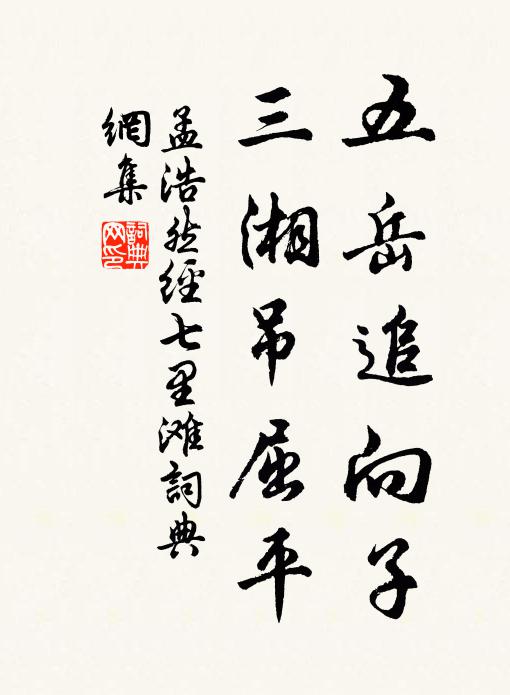 五岳追向子
三湘吊屈平
孟浩然經七里滩詞典
網集
詞典
网印